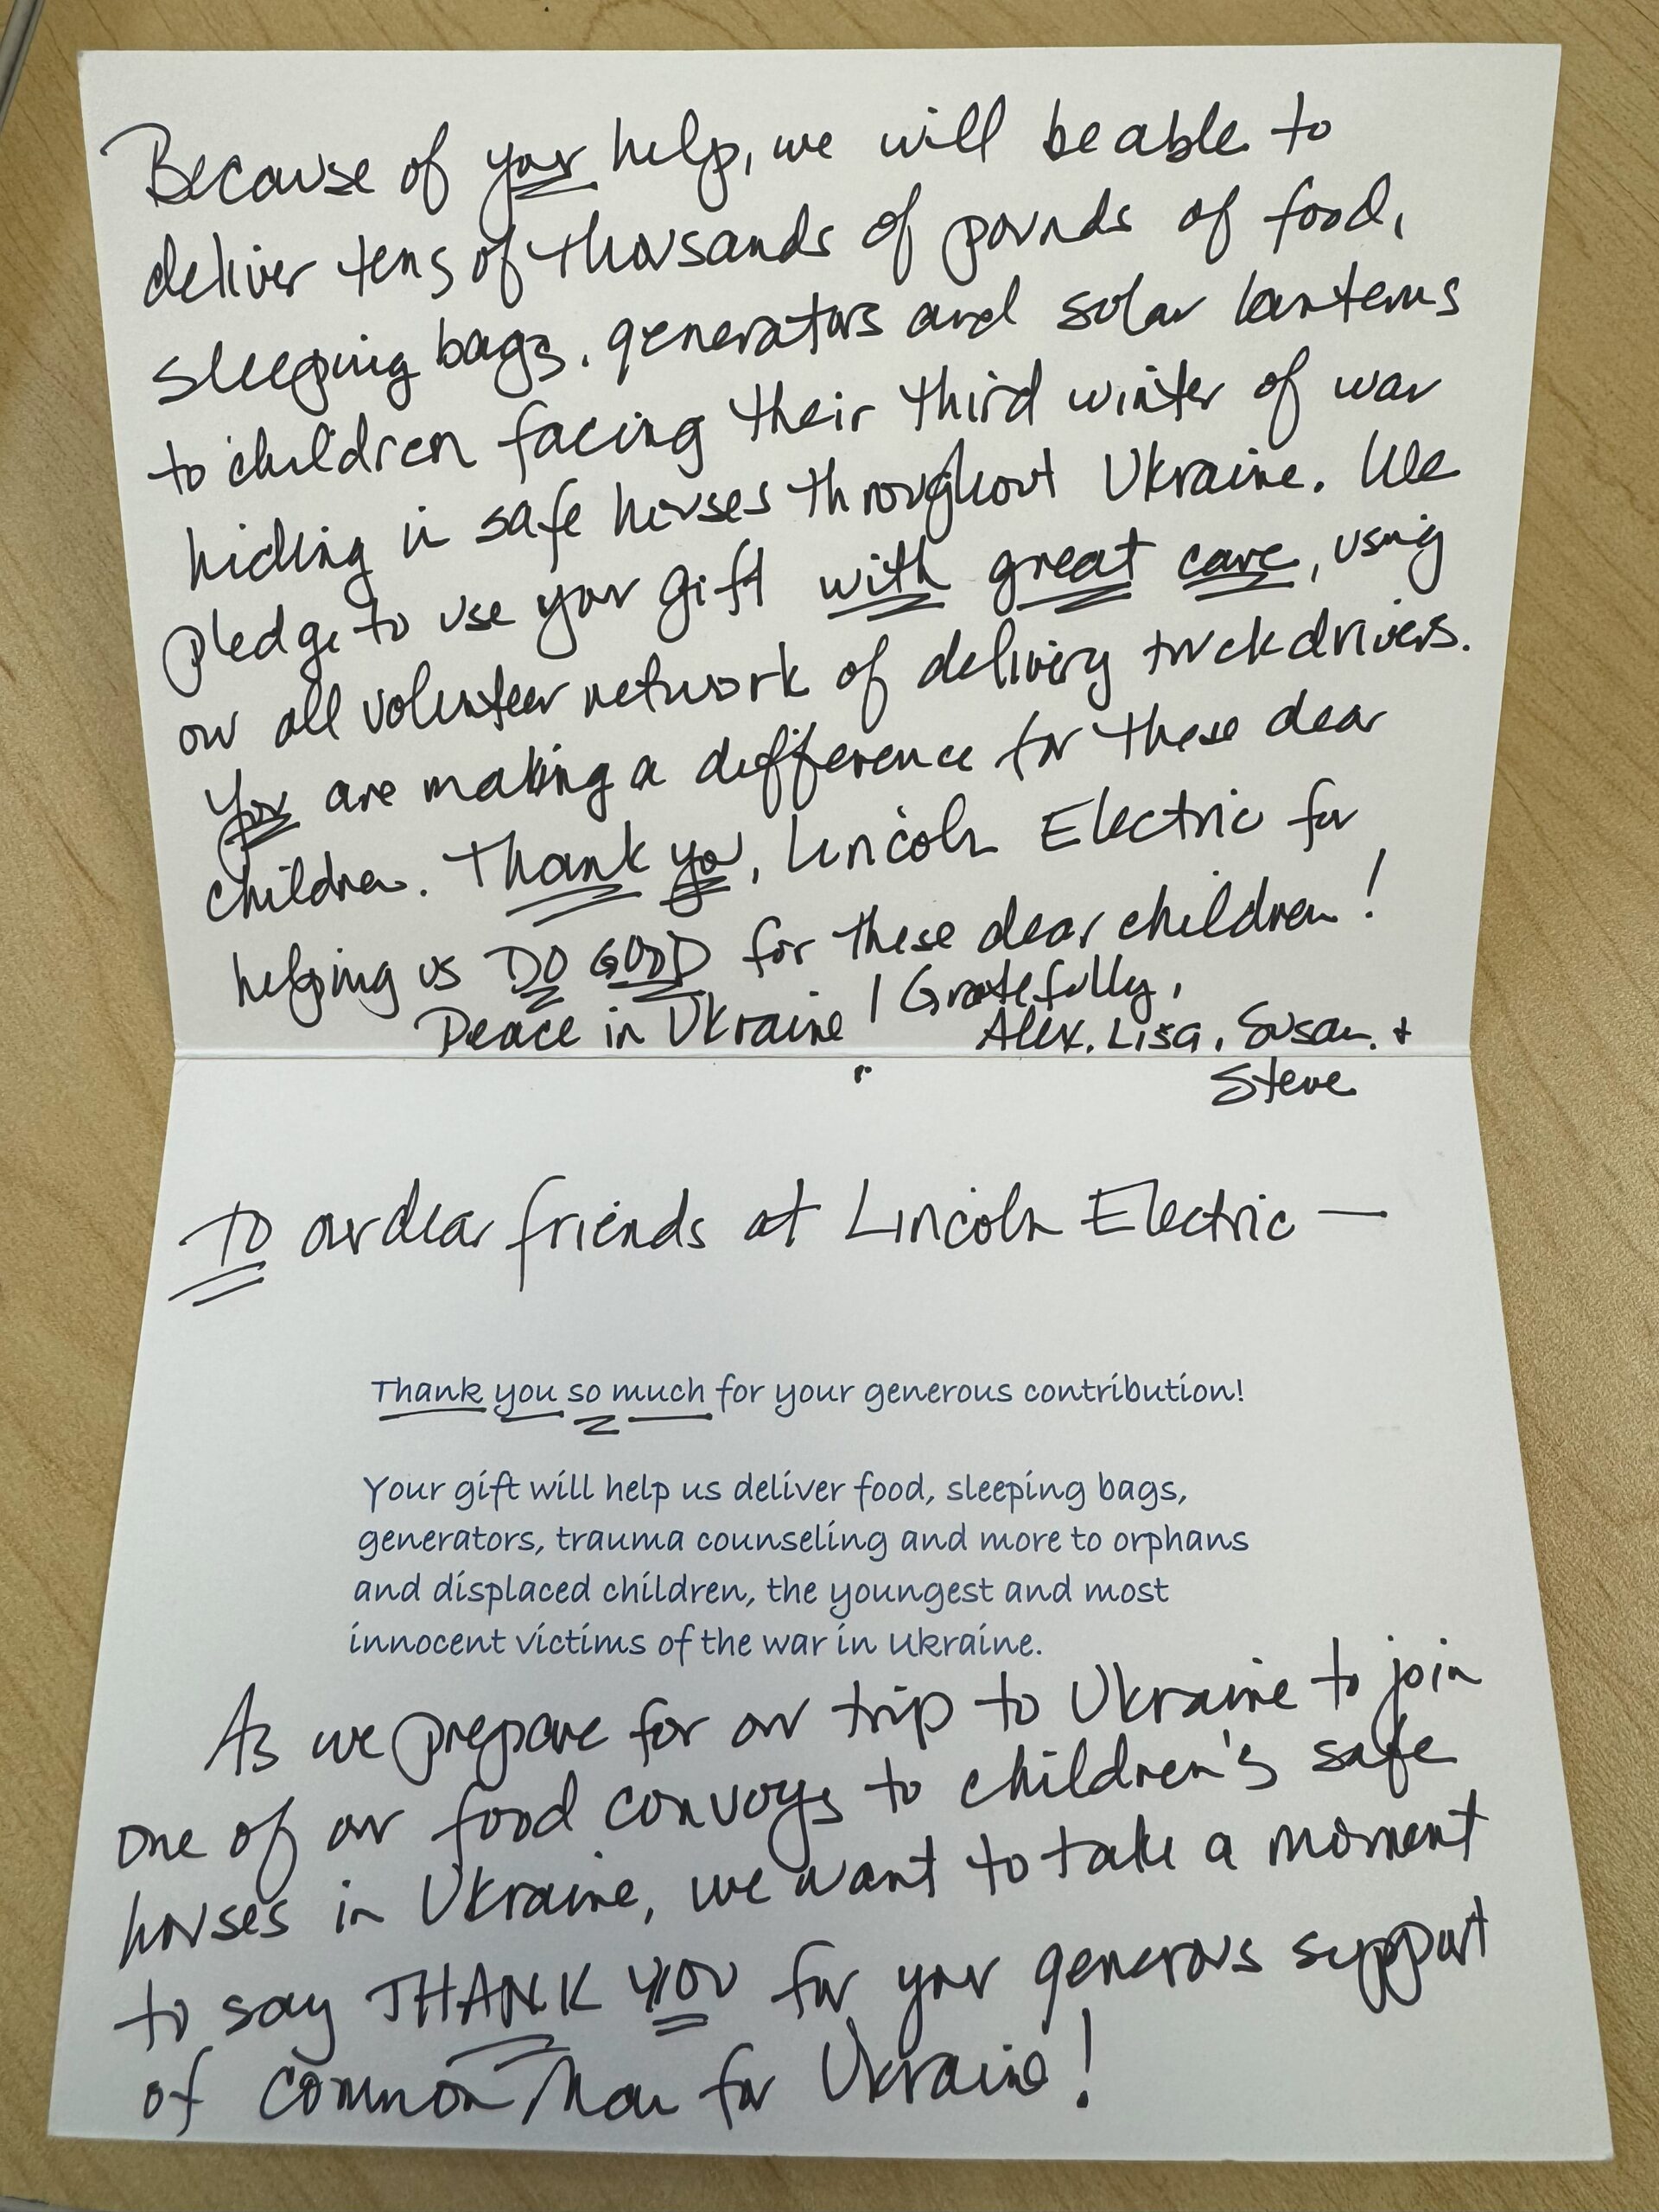 Because of your help, we will be able to
deliver tens of thousands of pounds of food,
sleeping bags, generators and solar lanterns
to children facing their third winter of war
hiding in safe houses throughout Ukraine. We
pledge to use your gift with great care, using
our all volunteer network of delivery truck drivers.
You are making a difference for these dear
children. Thank you, Lincoln Electric for
helping us DO GOOD for these dear children!
Peace in Ukraine! Gratefully,
Alex, Lisa, Susan, +
Steve
To our dear friends at Lincoln Electric —
Thank you so much for your generous contribution!
Your gift will help us deliver food, sleeping bags,
generators, trauma counseling and more to orphans
and displaced children, the youngest and most
innocent victims of the war in Ukraine.
As we prepare for our trip to Ukraine to join
one of our food convoys to children's safe
houses in Ukraine, we want to take a moment
to say THANK YOU for your generous support
of Common Man for Ukraine!